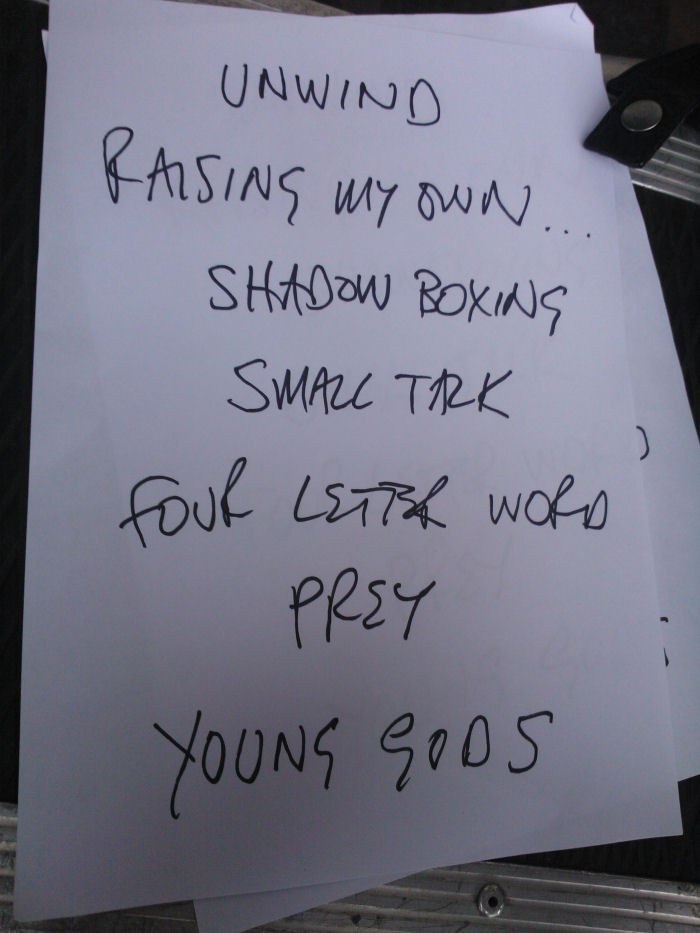 UNWIND
RAISING MY OWN...
SHADOW BOXING
SMALL TALK
FOUR LETTER WORD
PREY
YOUNG GODS